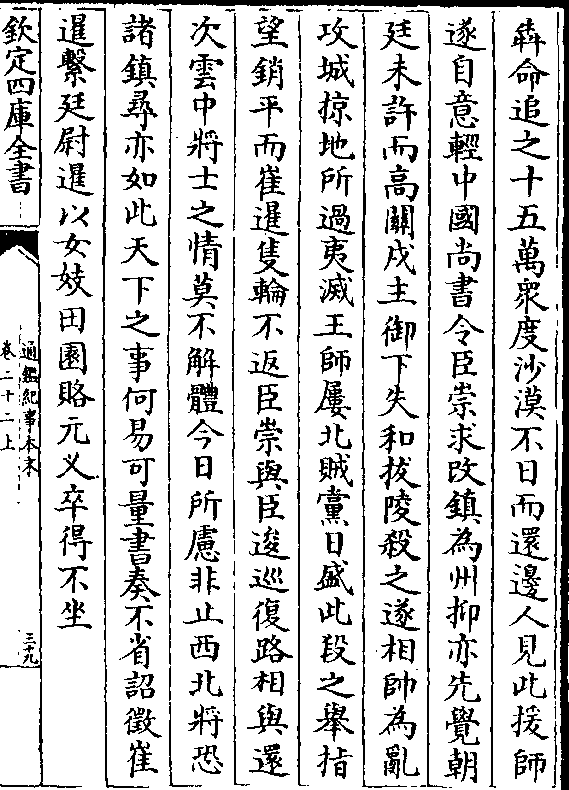 犇命追之十五萬衆度沙漠不日而還邊人見此援師
遂自意輕中國尚書令臣崇求改鎮為州抑亦先覺朝
廷未許而高闕戍主御下失和拔陵殺之遂相帥為亂
攻城掠地所過夷滅王師屢北賊黨日盛此段之舉指
望銷平而崔暹隻輪不返臣崇與臣逡巡復路相與還
次雲中將士之情莫不解體今日所慮非止西北將恐
諸鎮尋亦如此天下之事何易可量書奏不省詔徵崔
暹繫廷尉暹以女妓田園賂元义卒得不坐
欽定四庫全書
通鑑紀事本末
卷二十二上
三十九